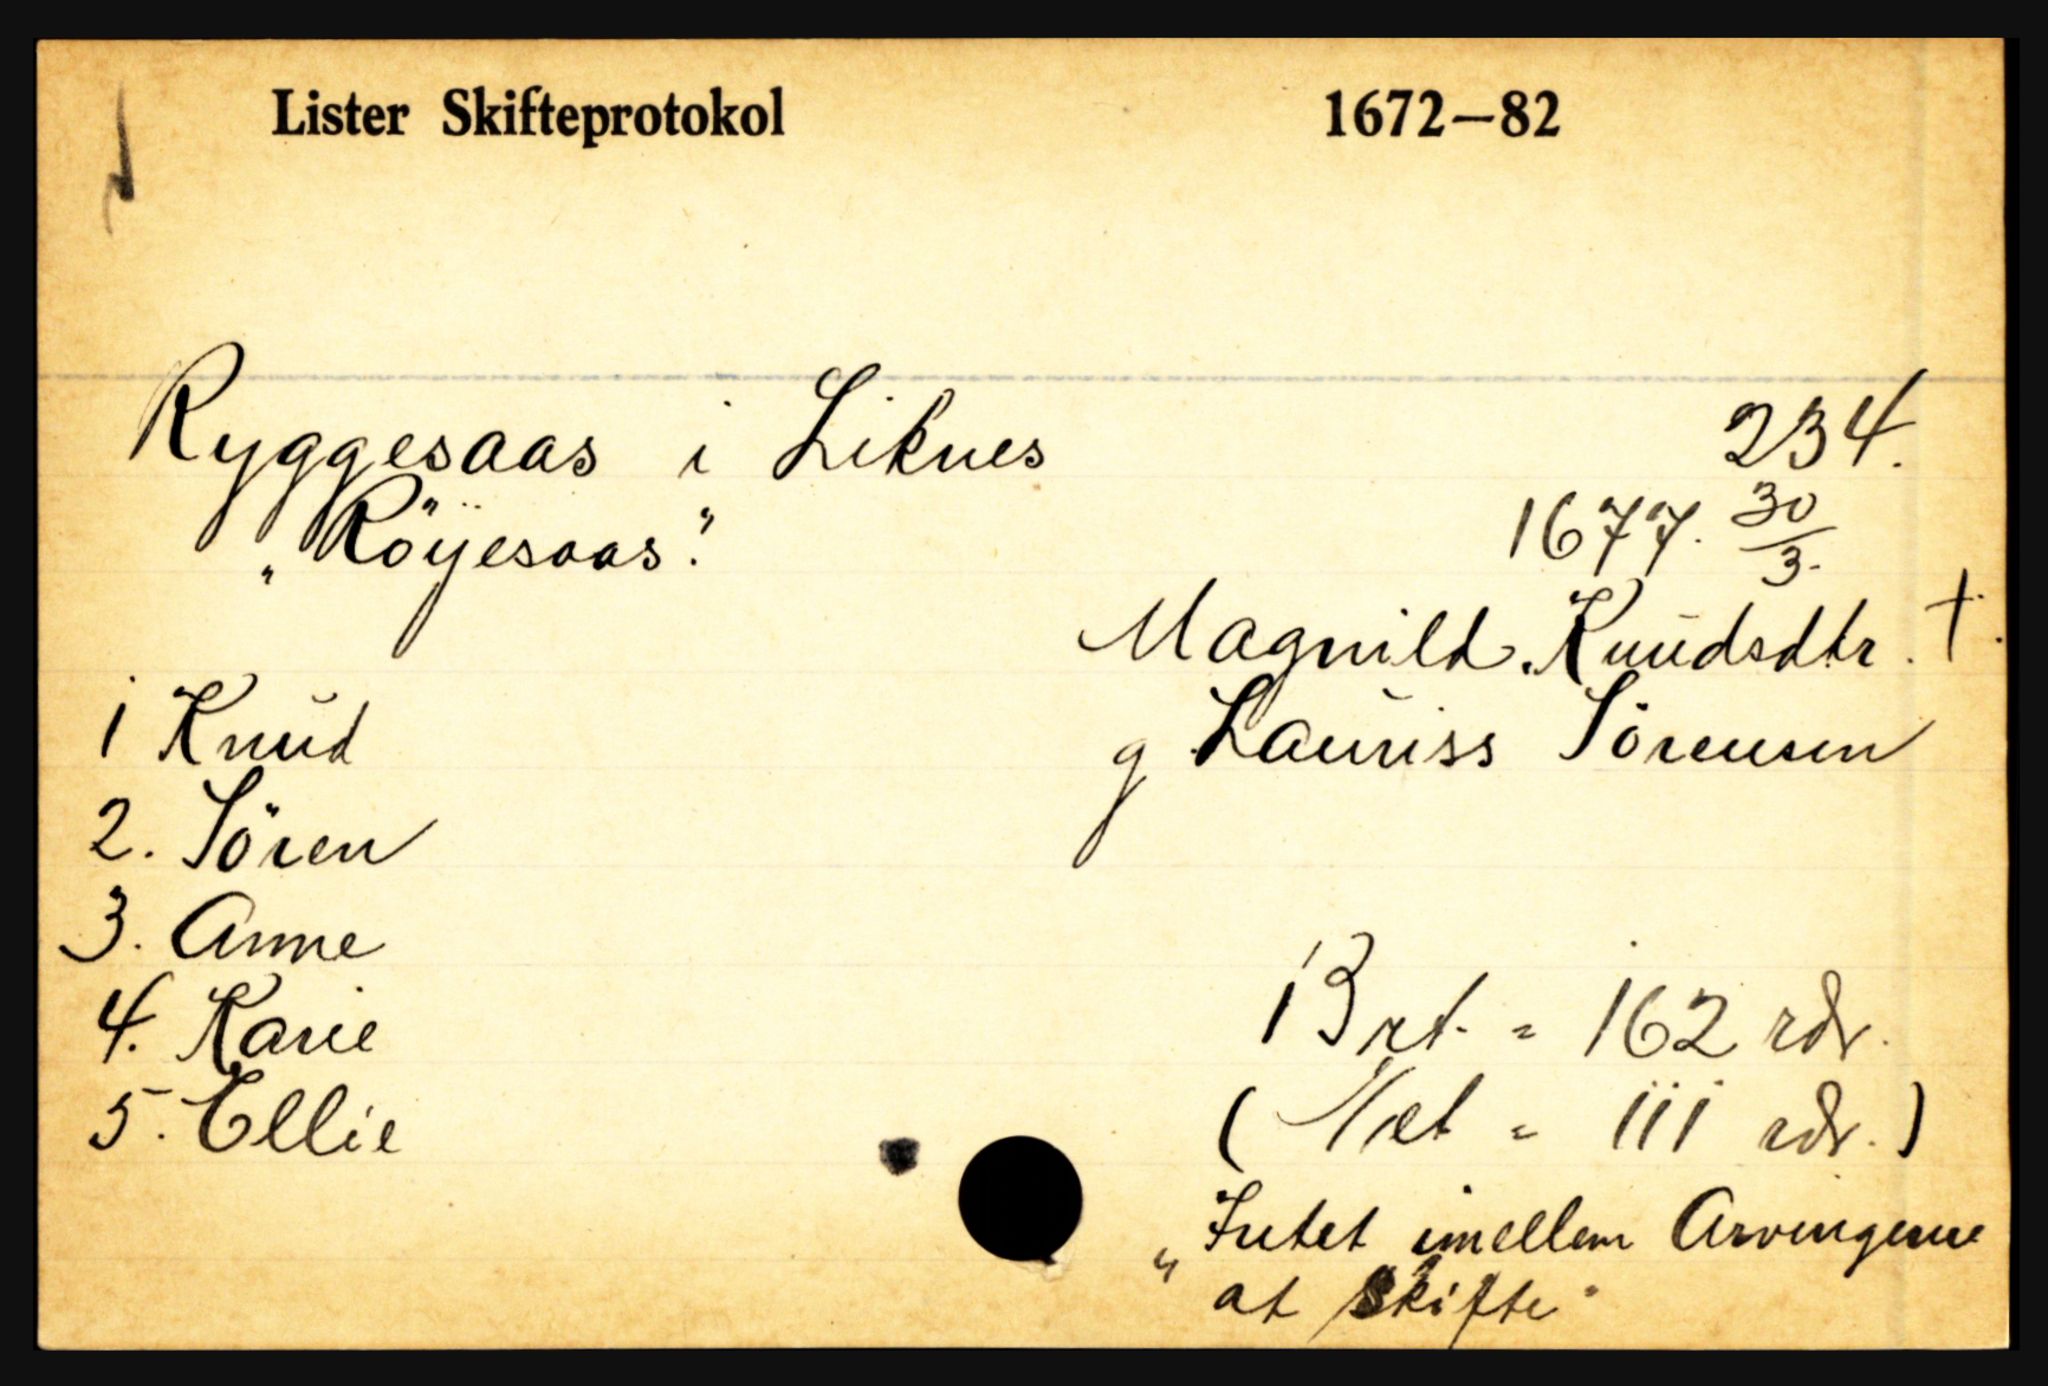 Lister Skifteprotokol 1672–82
Ryggesaas i Liknes 234.
„Röÿesaas." 1677. 30/3.
Magnild Knŭdsdtr. †.
g Laŭriss Sörensen
1 Knŭd
2. Sören
3. Anne
4. Karie
5. Ellie
Brt. = 162 rdr.
(Net = 111 rdr.)
„Intet imellem Arvingerne
at Skifte"